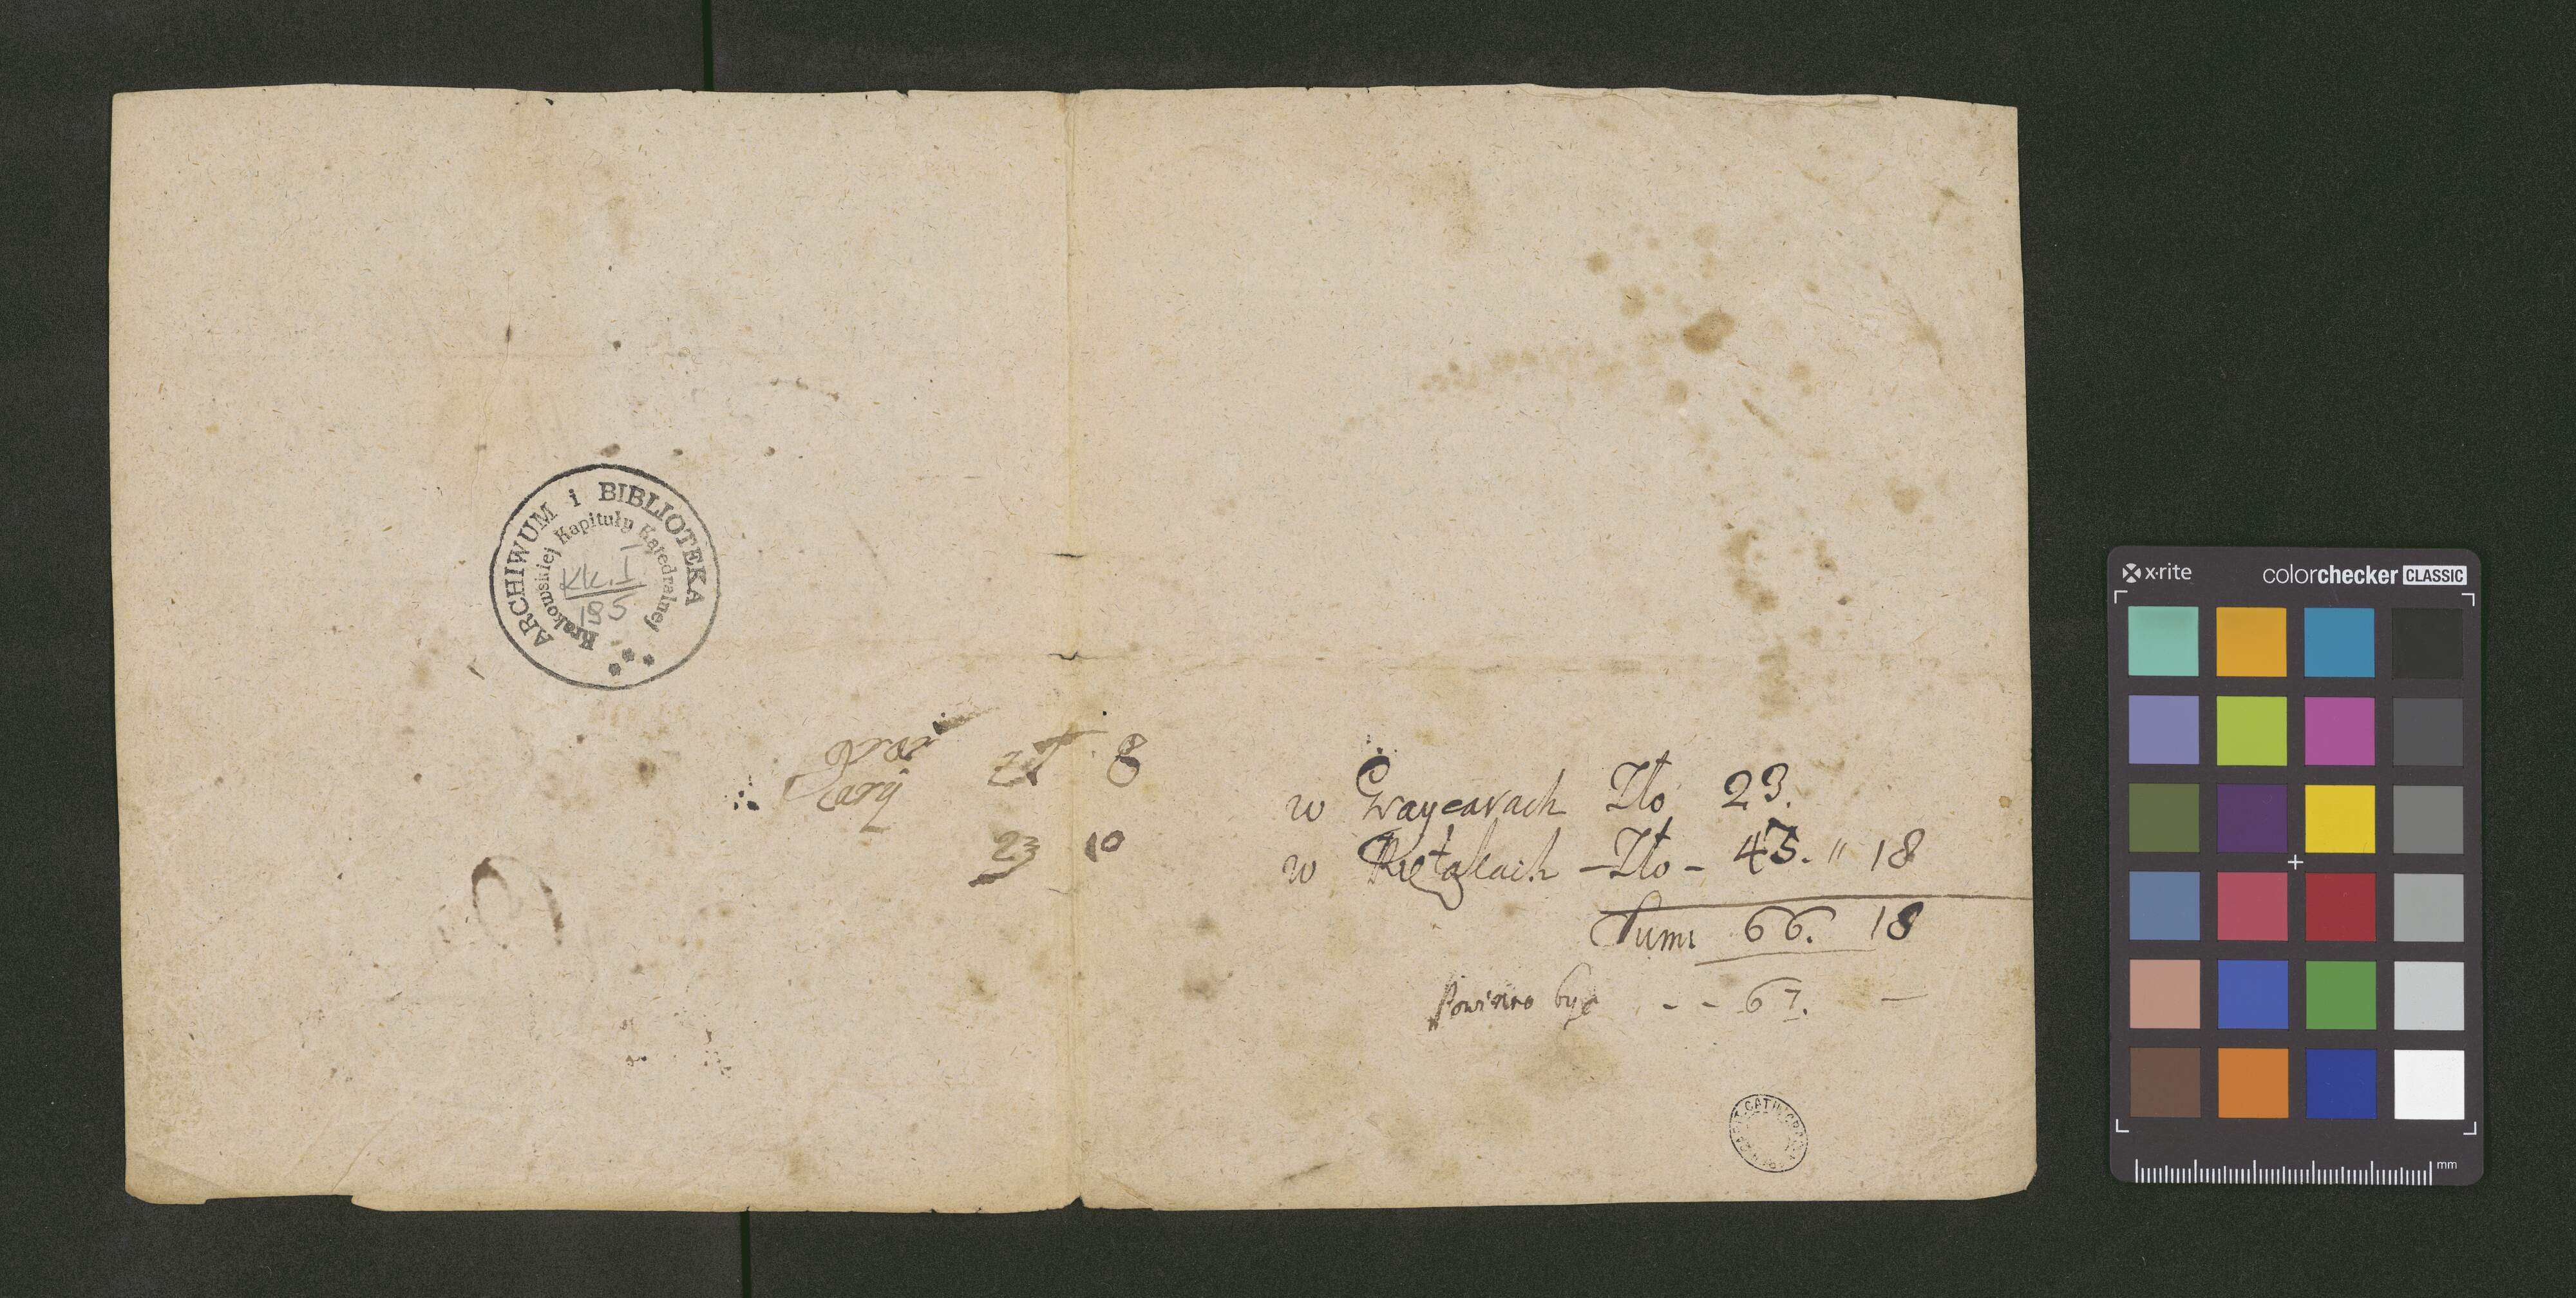 ARCHIWUM i BIBLIOTEKA
Krakowskiej Kapituły Katedralnej
KK. I
195
8
23 10
w Graycarach Zło 23.
w Pietakach - Zło - 43. " 18
Sum 66. 18
Powinno być - - 67. —
x·rite
colorchecker CLASSIC
mm